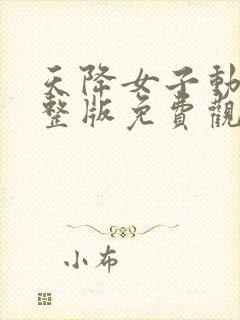 天降女子動
整版免費觀
小布